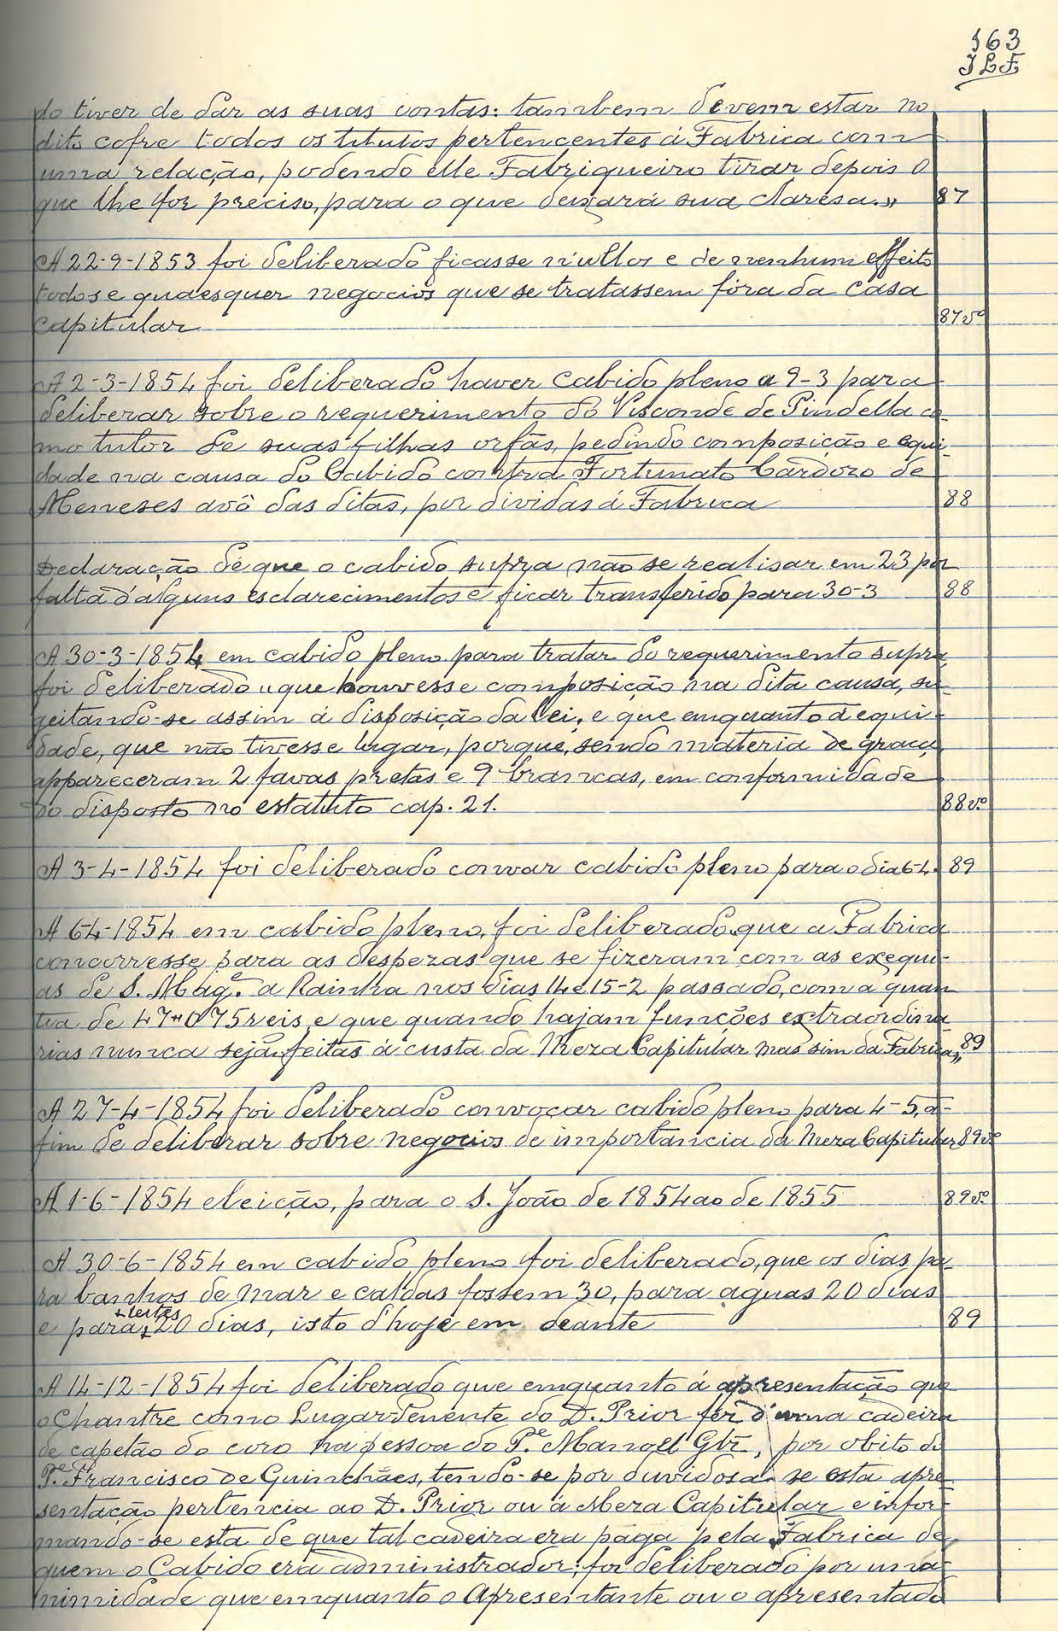 163
JLF
do tiver de dar as suas contas: tambem devem estar no
dito cofre todos os titulos pertencentes á Fabrica com
uma relação, podendo elle Fabriqueiro tirar depois o
que lhe for preciso, para o que deixará sua claresa.,, 87
A 22-9-1853 foi deliberado ficasse nullos e de nenhum effeito
todos e quaesquer negocios que se tratassem fóra da casa
capitular 87vº
A 2-3-1854 foi deliberado haver cabido pleno a 9-3 para
deliberar sobre o requerimento do Visconde de Pindella co
mo tutor de suas filhas orfãs, pedindo composição e equi-
dade na causa do Cabido contra Fortunato Cardozo de
Meneses avô das ditas, por dividas á Fabrica 88
Declaração de que o cabido supra não se realisar em 23 por
falta d'alguns esclarecimentos e ficar transferido para 30-3 88
A 30-3-1854 em cabido pleno para tratar do requerimento supra
foi deliberado "que houvesse composição na dita causa, su
geitando-se assim á disposição da lei, e que emquanto á equi-
dade, que não tivesse lugar, porque, sendo materia de graça,
appareceram 2 favas pretas e 9 brancas, em conformidade
do disposto no estatuto cap. 21. 88vº
A 3-4-1854 foi deliberado convar cabido pleno para o dia 6-4. 89
A 6-4-1854 em cabido pleno, foi deliberado que a Fabrica
concorresse para as despezas que se fizeram com as exequi-
as de S. Mag.e a Rainha nos dias 14 e 15-2 passado, com a quan
tia de 47#075 reis, e que quando hajam funções extraordina
rias nunca sejã feitas á custa da Meza Capitular mas sim da Fabrica,, 89
A 27-4-1854 foi deliberado convocar cabido pleno para 4-5, a-
fim de deliberar sobre negocios de importancia da Meza Capitular 89vº
A 1-6-1854 eleição, para o S. João de 1854 ao de 1855 89vº
A 30-6-1854 em cabido pleno foi deliberado, que os dias pa
ra banhos de mar e caldas fossem 30, para aguas 20 dias
e para + leites + 20 dias, isto d'hoje em deante 89
A 14-12-1854 foi deliberado que emquanto á apresentação que
o Chantre como Lugar Tenente do D. Prior fez d'uma cadeira
de capelão do coro na pessoa do P.e Manoel Glz, por obito do
P.e Francisco de Guimarães, tendo-se por duvidosa se esta apre
sentação pertencia ao D. Prior ou á Meza Capitular e infor-
mando-se esta de que tal cadeira era paga pela Fabrica de
quem o Cabido era administrador; foi deliberado por una-
nimidade que emquanto o Apresentante ou o apresentado